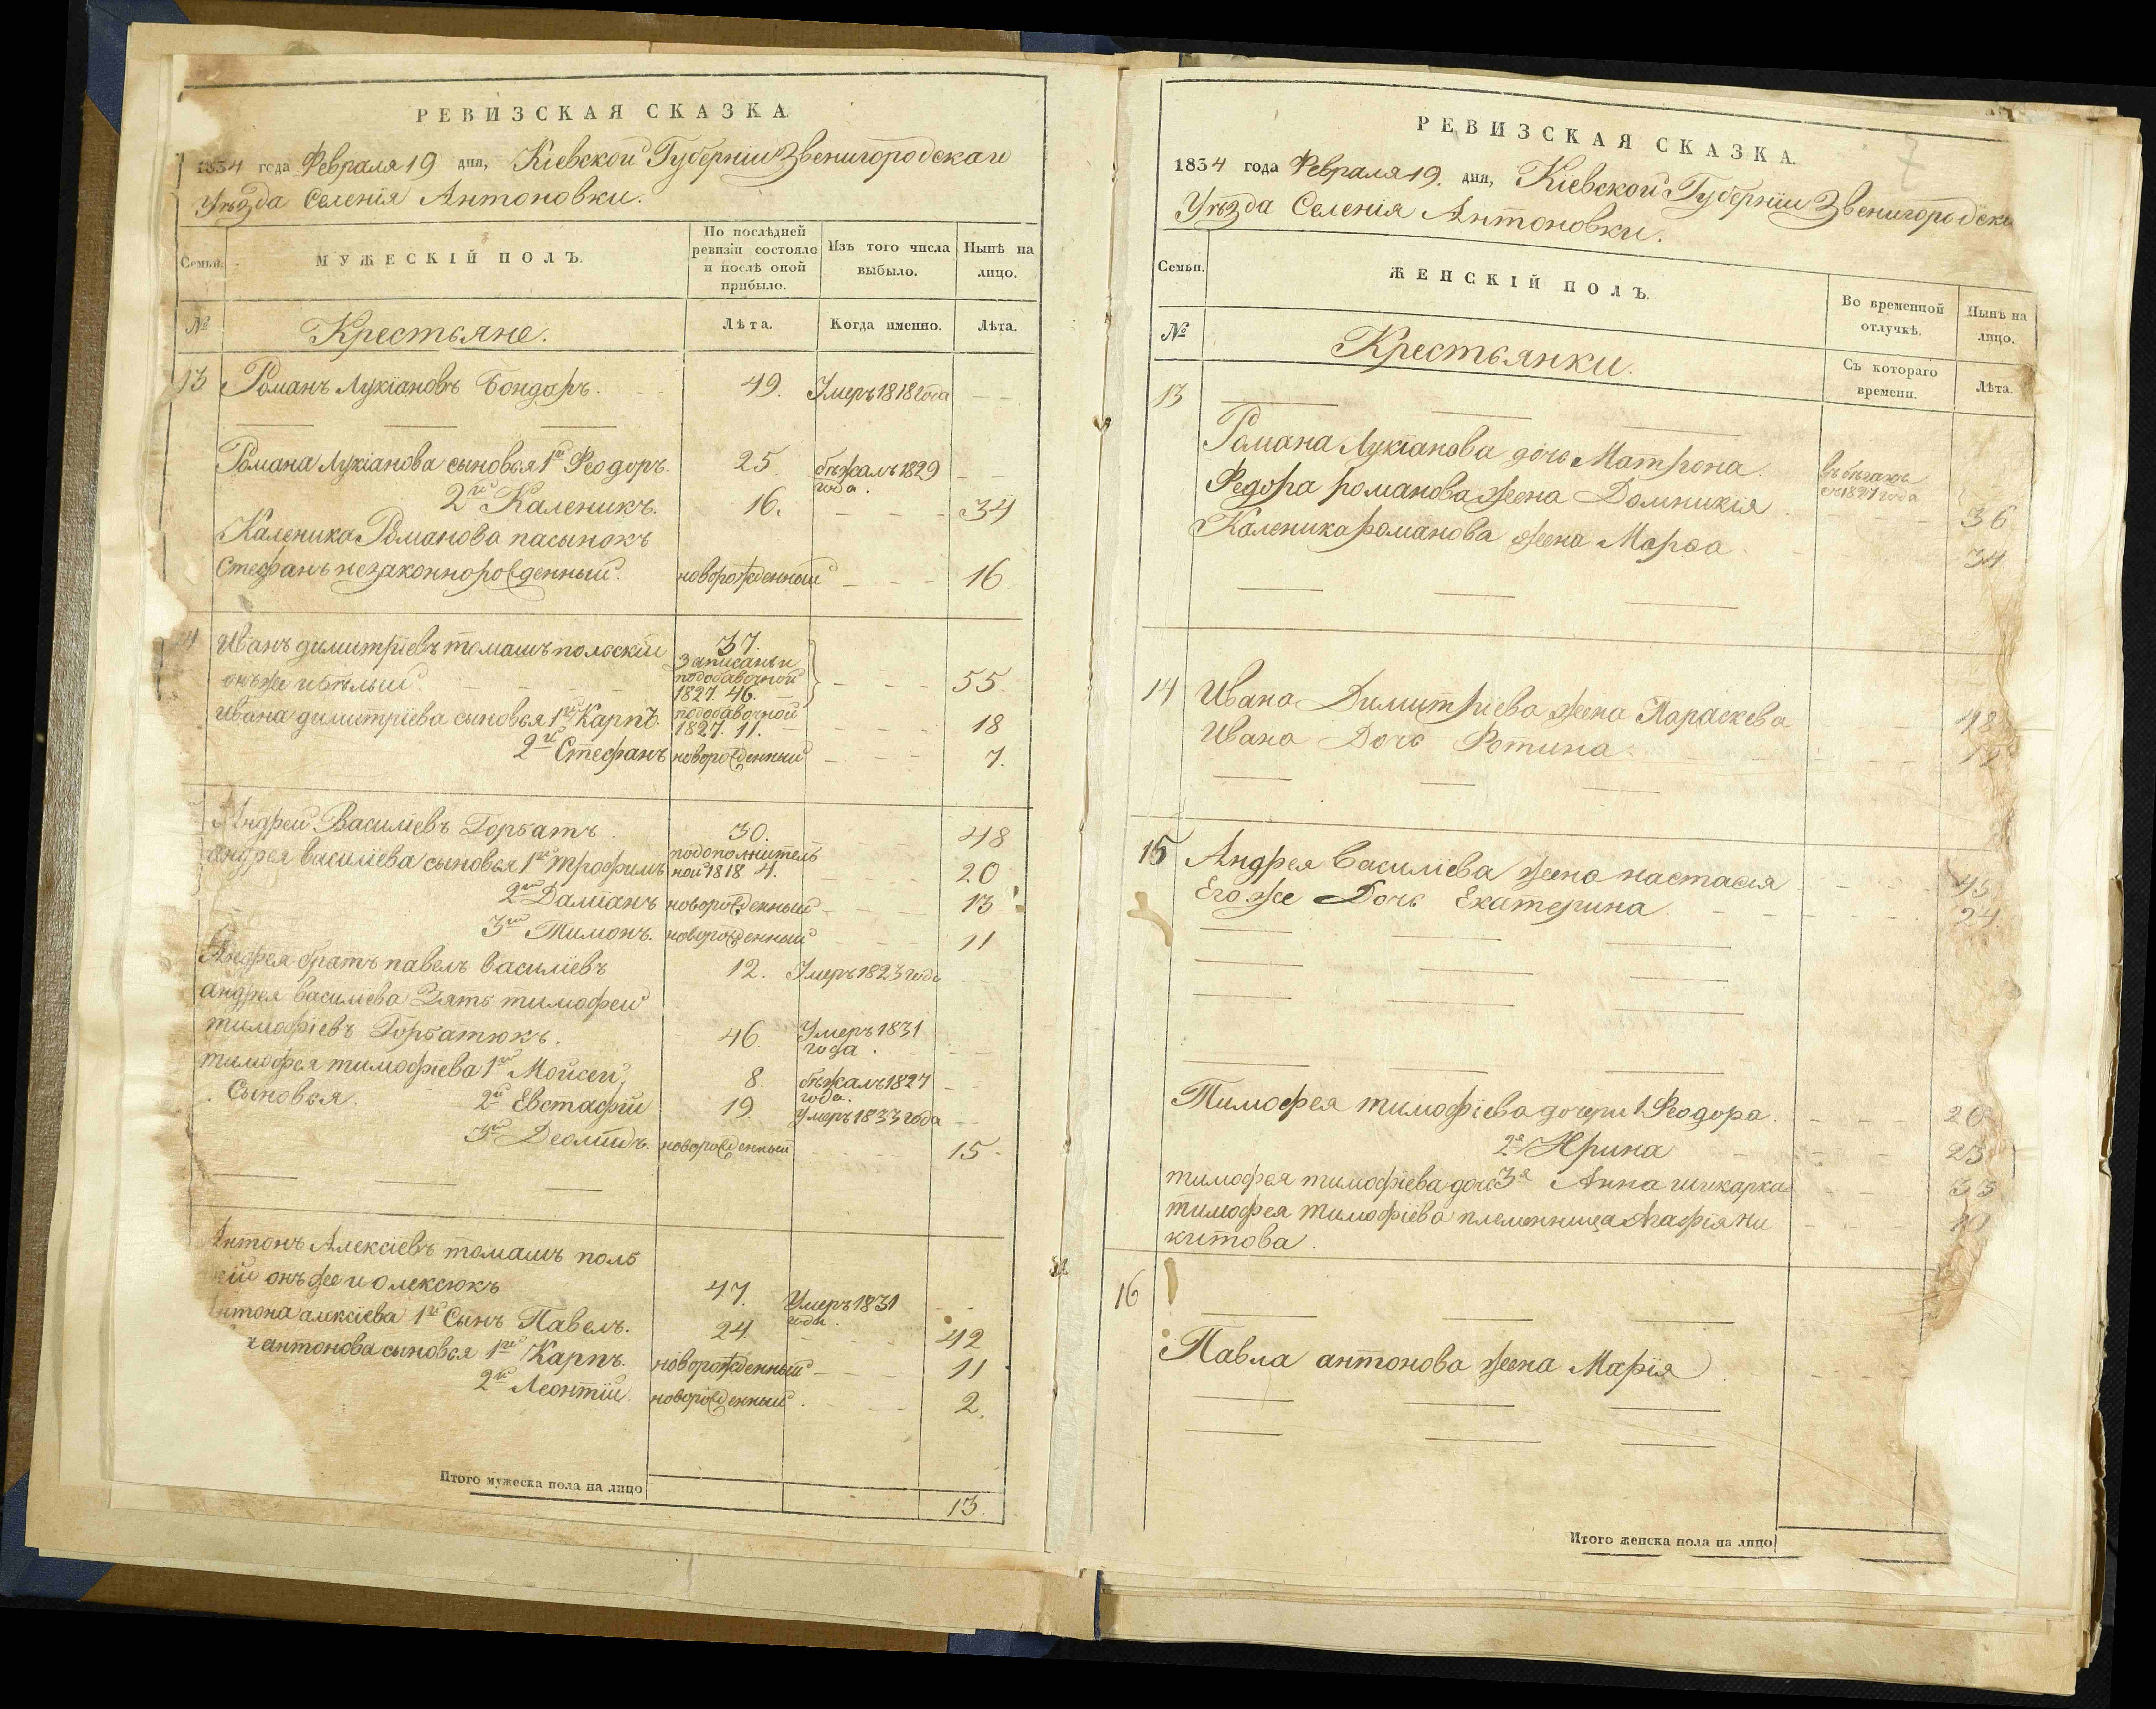 РЕВИЗСКАЯ СКАЗКА.
1834 года Февраля 19 дня, Кіевской Губерніи Звенигородскаго
Уѣзда Селенія Антоновки.
Семьи.
МУЖЕСКІЙ ПОЛЪ.
По послѣдней ревизіи состояло и послѣ оной прибыло.
Изъ того числа выбыло.
Нынѣ на лицо.
№
Крестьяне.
Лѣта.
Когда именно.
Лѣта.
13 Романъ Лукіановъ Бондарь. 49. Умеръ 1818 года
Романа Лукіанова сыновья 1й Феодоръ. 25 бѣжалъ 1829 года.
2й Каленикъ. 16. 34
Каленика Романова пасынокъ
Стефанъ незаконнорожденный. новорожденный 16
Иванъ димитріевъ томашъпольскій 37.
онъже и бѣлый. Записанъ и подобавочной 1827 46. 55
Ивана димитріева сыновья 1й Карпъ. подобавочной 1827. 11. 18
2й Стефанъ новорожденный 7.
Андрей Василіевъ Горбатъ. 30. 48
андрея василіева сыновья 1й трофимъ подополнительной 1818 4. 20
2й Даміанъ новорожденный 13
3й Тимонъ. новорожденный 11
Андрея братъ павелъ василіевъ 12. Умеръ 1823 года
андрея василіева Зять тимофей
тимофіевъ Горбатюкъ. 46 Умеръ 1831 года.
тимофея тимофіева 1й Мойсей, 8. бѣжалъ 1827 года.
Сыновья. 2й Евстафій 19 Умеръ 1833 года
3й новорожденный 15
Антонъ Алексіевъ томашъ поль
кій онъ же и олексюкъ 47. Умеръ 1831 года.
Антона алексіева 1й Сынъ Павелъ. 24. 42
антонова сыновья 1й Карпъ. новорожденный 11
2й Леонтій. новорожденный. 2.
Итого мужеска пола на лицо 13.
7
РЕВИЗСКАЯ СКАЗКА.
1834 года Февраля 19. дня, Кіевской Губерніи Звенигородска
Уѣзда Селенія Антоновки.
Семьи.
ЖЕНСКІЙ ПОЛЪ.
Во временной отлучкѣ.
Нынѣ на лицо.
№
Крестьянки.
Съ котораго времени.
Лѣта.
13
Романа Лукіанова дочь Матрона. въ бѣгахъ съ 1827 года
Федора романова жена Домникія 36
Каленика романова жена Марѳа 34
14 Ивана Димитріева жена Параскева 48
Ивана Дочь Фотина.
15 Андрея Василіева жена настасія 45
Его же Дочь Екатерина. 24.
Тимофея тимофіева дочери 1 Феодора. 26
2я Ирина 23
тимофея тимофіева дочь 3я Анна шикарка 33
тимофея тимофіева племянница Агафія ни
китова.
16
Павла антонова жена Марія
Итого женска пола на лицо